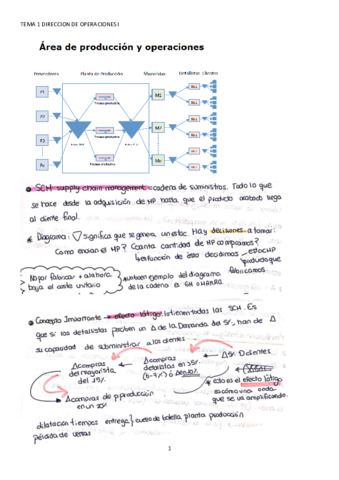 TEMA 1 DIRECCION DE OPERACIONES I
Área de producción y operaciones
Proveedores Planta de Producción Mayoristas Detallistas Clientes
P1
P2
P3
M1
M2
SCM supply chain management = cadena de suministros. Todo lo que
se hace desde la adquisición de MP hasta que el producto acabado llega
al cliente final.
Diagrama: ▽ significa que se genera un stoc. Hay decisiones a tomar:
Como envían el MP? Cuanta cantidad de MP compramos?
en función de ésto decidimos
producto que
fabricamos
Mayor fabricar + ahorra
baja el coste unitario
también ejemplo del diagrama
de la cadena es GH OHARRA
Concepto Importante → efecto látigo, lo tienen todas las SCM. Es
que si los detallistas perciben un Δ de la demanda del 5%, han de Δ
su capacidad de suministrar a los clientes
Δ compras
del mayorista
del 15%
Δ compras
detallista en 5%
Δ5% D clientes
Δ compras de p producción
en un 20%
esto es el efecto látigo
es como una onda
que se va amplificando.
dilatación tiempos entrega} cuello de botella planta producción
pérdida de ventas
1